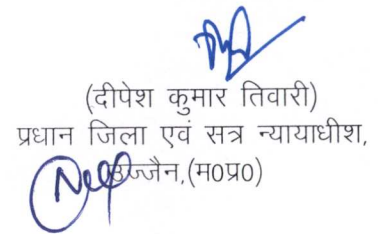 (दीपेश कुमार तिवारी)
प्रधान जिला एवं सत्र न्यायाधीश,
उज्जैन,(म0प्र0)